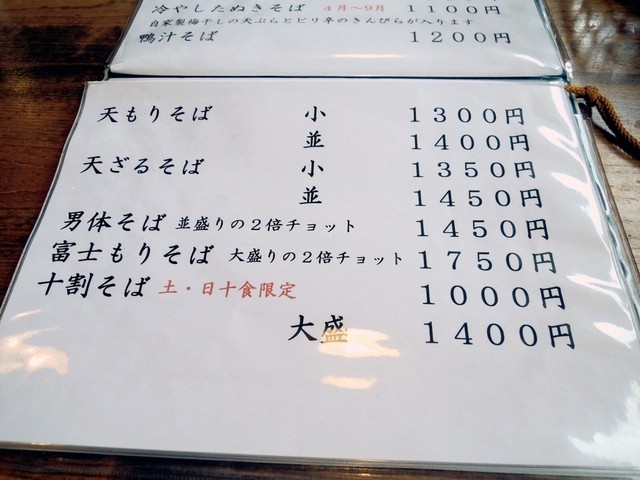 冷やしたぬきそば 4月～9月 1100円
自家製梅干しの天ぷらとピリ辛のきんぴらが入ります
鴨汁そば 1200円
天もりそば 小 1300円
並 1400円
天ざるそば 小 1350円
並 1450円
男体そば 並盛りの2倍チョット 1450円
富士もりそば 大盛りの2倍チョット 1750円
十割そば 土・日十食限定 1000円
大盛 1400円